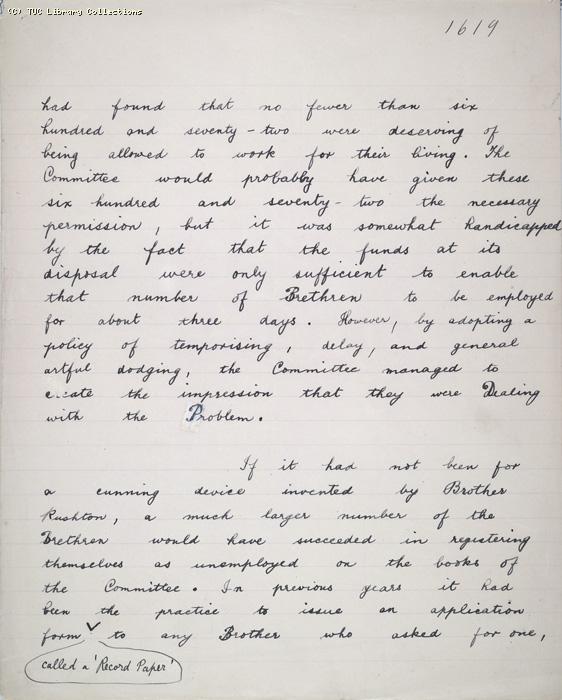 (C) TUC Library Collections
1619
had found that no fewer than six
hundred and seventy-two were deserving of
being allowed to work for their living. The
Committee would probably have given these
six hundred and seventy-two the necessary
permission, but it was somewhat handicapped
by the fact that the funds at its
disposal were only sufficient to enable
that number of Brethren to be employed
for about three days. However, by adopting a
policy of temporising, delay, and general
artful dodging, the Committee managed to
create the impression that they were Dealing
with the Problem.
If it had not been for
a cunning device invented by Brother
Rushton, a much larger number of the
Brethren would have succeeded in registering
themselves as unemployed on the books of
the Committee. In previous years it had
been the practice to issue an application
form to any Brother who asked for one,
called a 'Record Paper'